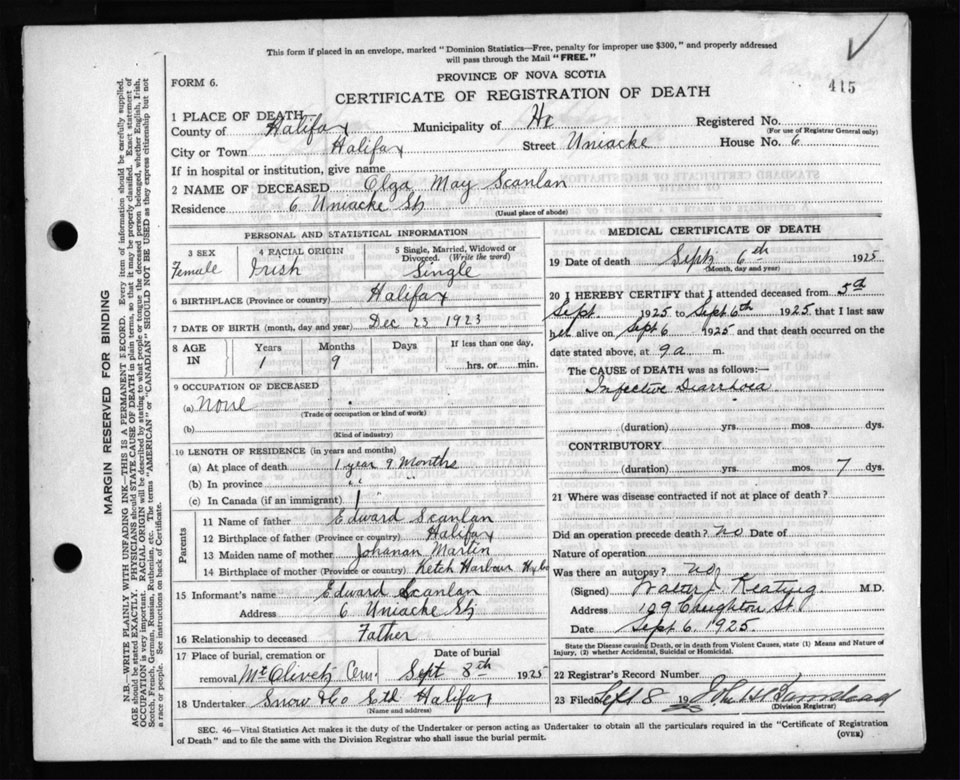 This form if placed in an envelope, marked "Dominion Statistics—Free, penalty for improper use $300," and properly addressed
will pass through the Mail "FREE."
PROVINCE OF NOVA SCOTIA
415
FORM 6.
CERTIFICATE OF REGISTRATION OF DEATH
1 PLACE OF DEATH
County of Halifax Municipality of Hx Registered No.
(For use of Registrar General only)
City or Town Halifax Street Uniacke House No. 6
If in hospital or institution, give name
2 NAME OF DECEASED Olga May Scanlan
Residence 6 Uniacke St
(Usual place of abode)
PERSONAL AND STATISTICAL INFORMATION
3 SEX 4 RACIAL ORIGIN 5 Single, Married, Widowed or
Divorced. (Write the word)
Female Irish Single
6 BIRTHPLACE (Province or country) Halifax
7 DATE OF BIRTH (month, day and year) Dec 23 1923
8 AGE IN Years Months Days If less than one day,
1 9 hrs. or min.
9 OCCUPATION OF DECEASED
(a) None
(Trade or occupation or kind of work)
(b)
(Kind of industry)
10 LENGTH OF RESIDENCE (in years and months)
(a) At place of death 1 year 9 Months
(b) In province " "
(c) In Canada (if an immigrant) "
Parents
11 Name of father Edward Scanlan
12 Birthplace of father (Province or country) Halifax
13 Maiden name of mother Johanan Martin
14 Birthplace of mother (Province or country) Ketch Harbour Hx Co
15 Informant's name Edward Scanlan
Address 6 Uniacke St
16 Relationship to deceased Father
17 Place of burial, cremation or Date of burial
removal Mt Olivet Cem Sept 8th 1925
18 Undertaker Snow & Co Halifax
(Name and address)
MEDICAL CERTIFICATE OF DEATH
19 Date of death Sept 6th 1925
(Month, day and year)
20 I HEREBY CERTIFY that I attended deceased from 5th
Sept 1925 to Sept 6th 1925 that I last saw
her alive on Sept 6 1925 and that death occurred on
date stated above, at 9 a m.
The CAUSE of DEATH was as follows:—
Infective Diarrhoea
(duration) yrs. mos. dys.
CONTRIBUTORY
(duration) yrs. mos. 7 dys.
21 Where was disease contracted if not at place of death?
Did an operation precede death? no Date of
Nature of operation
Was there an autopsy? no
(Signed) Walter J. Keating M.D.
Address 129 Creighton St
Date Sept 6, 1925.
State the Disease causing Death, or in death from Violent Causes, state (1) Means and Nature of
Injury, (2) whether Accidental, Suicidal or Homicidal.
22 Registrar's Record Number
23 Filed Sept 8 19
(Division Registrar)
SEC. 46—Vital Statistics Act makes it the duty of the Undertaker or person acting as Undertaker to obtain all the particulars required in the "Certificate of Registration
of Death" and to file the same with the Division Registrar who shall issue the burial permit.
(OVER)
MARGIN RESERVED FOR BINDING
N.B.—WRITE PLAINLY WITH UNFADING INK—THIS IS A PERMANENT RECORD. Every item of information should be carefully supplied.
AGE should be stated EXACTLY. PHYSICIANS should STATE CAUSE OF DEATH in plain terms, so that it may be properly classified. Exact statement of
OCCUPATION is very important. RACIAL ORIGIN will be described by stating to what people or tongue the deceased person belonged, whether English, Irish,
Scotch, French, German, Russian, Ruthenian, etc. The terms "AMERICAN" or "CANADIAN" SHOULD NOT BE USED as they express citizenship but not
a race or people. See instructions on back of Certificate.